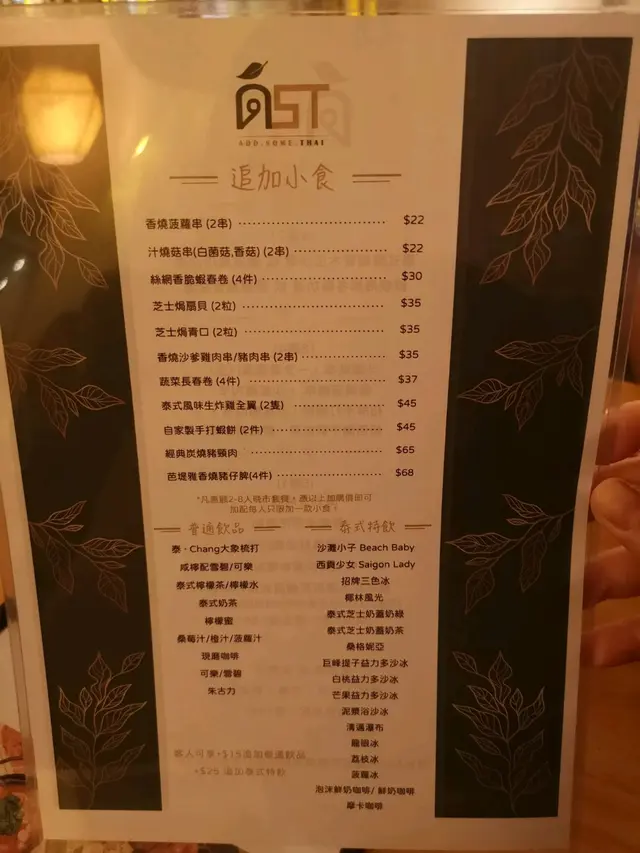 ADD.HOME.THAI
追加小食
香燒菠蘿串 (2串) $22
汁燒菇串(白菌菇,香菇) (2串) $22
絲網香脆蝦春卷 (4件) $30
芝士焗扇貝 (2粒) $35
芝士焗青口 (2粒) $35
香燒沙爹雞肉串/豬肉串 (2串) $35
蔬菜長春卷 (4件) $37
泰式風味生炸雞全翼 (2隻) $45
自家製手打蝦餅 (2件) $45
經典炭燒豬頸肉 $65
芭堤雅香燒豬仔脾(4件) $68
*凡惠顧2-8人晚市套餐，憑以上加購價即可
加配每人只限加一款小食。
普通飲品
泰・Chang大象梳打
咸檸配雪碧/可樂
泰式檸檬茶/檸檬水
泰式奶茶
檸檬蜜
桑莓汁/橙汁/菠蘿汁
現磨咖啡
可樂/雪碧
朱古力
客人可享+$15追加普通飲品
+$25 追加泰式特飲
泰式特飲
沙灘小子 Beach Baby
西貢少女 Saigon Lady
招牌三色冰
椰林風光
泰式芝士奶蓋奶綠
泰式芝士奶蓋奶茶
桑格妮亞
巨峰提子益力多沙冰
白桃益力多沙冰
芒果益力多沙冰
泥漿浴沙冰
清邁瀑布
龍眼冰
荔枝冰
菠蘿冰
泡沫鮮奶咖啡/ 鮮奶咖啡
摩卡咖啡